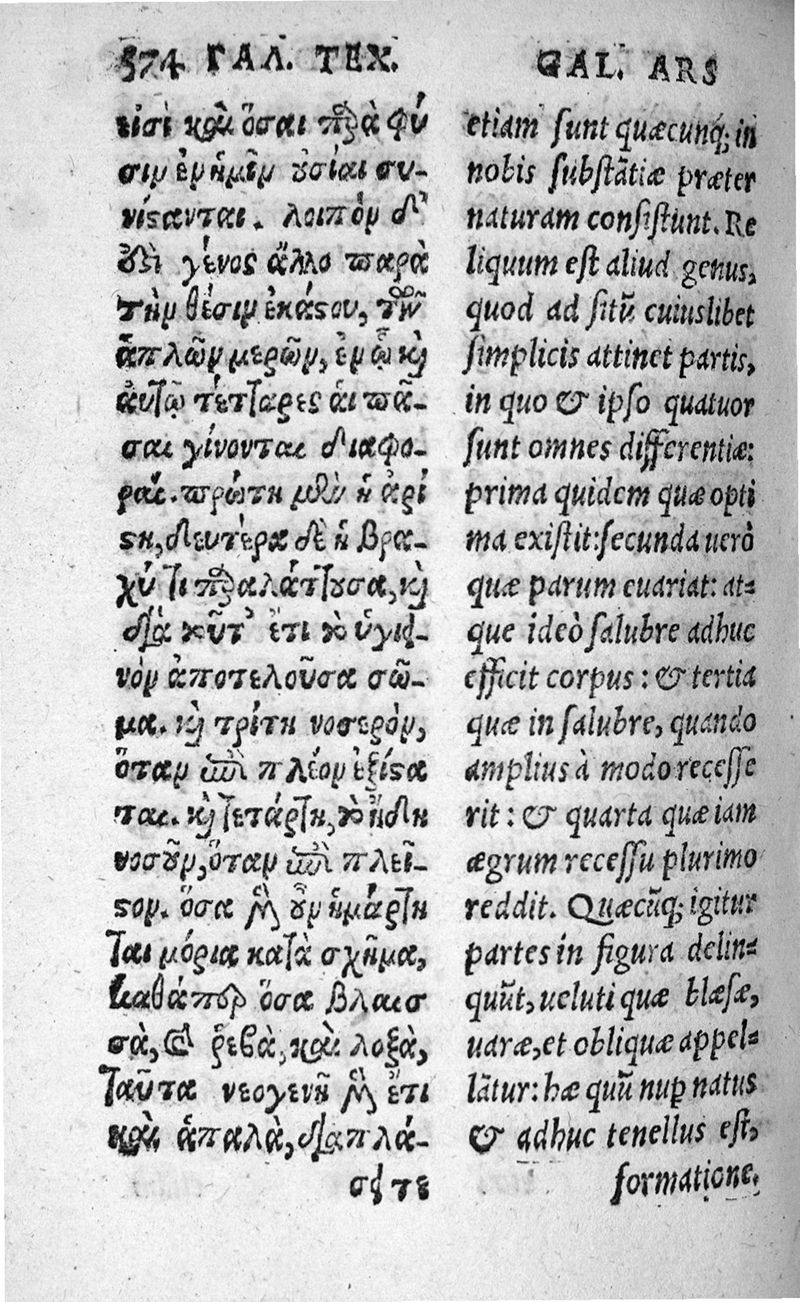 574 ΓΑΛ. ΤΕΧ.
εισὶ καὶ ὅσαι παρὰ φύ
σιν ἐν ἡμῖν οὐσίαι συ-
νίστανται. λοιπὸν δ'
ἐστὶ γένος ἄλλο παρὰ
τὴν θέσιν ἑκάστου, τῶν
ἁπλῶν μερῶν, ἐν ᾧ καὶ
αὐτῷ τέτταρες ἁι πᾶ-
σαι γίνονται διαφο-
ραί. πρώτη μὲν ἡ ἀρί
στη, δευτέρα δὲ ἡ βρα-
χύ τι παραλάττουσα, καὶ
διὰ τοῦτ' ἔτι τὸ ὑγιει-
νὸν ἀποτελοῦσα σῶ-
μα. καὶ τρίτη νοσερὸν,
ὅταν ἐπὶ πλέον ἐξίστα
ται. καὶ τετάρτη, τὸ ἤδη
νοσοῦν, ὅταν ἐπὶ πλεῖ-
στον. ὅσα μὲν οὖν ἡμάρτη
ται μόρια κατὰ σχῆμα,
καθάπερ ὅσα βλαισ
σὰ, καὶ ῥεβὰ, καὶ λοξὰ,
ταῦτα νεογενῆ μὲν ἔτι
καὶ ἁπαλὰ, διαπλά-
σει τε
GAL. ARS
etiam sunt quæcunq; in
nobis substātiæ præter
naturam consistunt. Re
liquum est aliud genus,
quod ad sitū cuiuslibet
simplicis attinet partis,
in quo & ipso quatuor
sunt omnes differentiæ:
prima quidem quæ opti
ma existit: secunda uerò
quæ parum euariat: at=
que ideò salubre adhuc
efficit corpus: & tertia
quæ in salubre, quando
amplius à modo recesse
rit: & quarta quæ iam
ægrum recessu plurimo
reddit. Quæcūq; igitur
partes in figura delin=
quūt, ueluti quæ blæsæ,
uaræ, et obliquæ appel=
lātur: hæ quū nuꝑ natus
& adhuc tenellus est,
formatione,